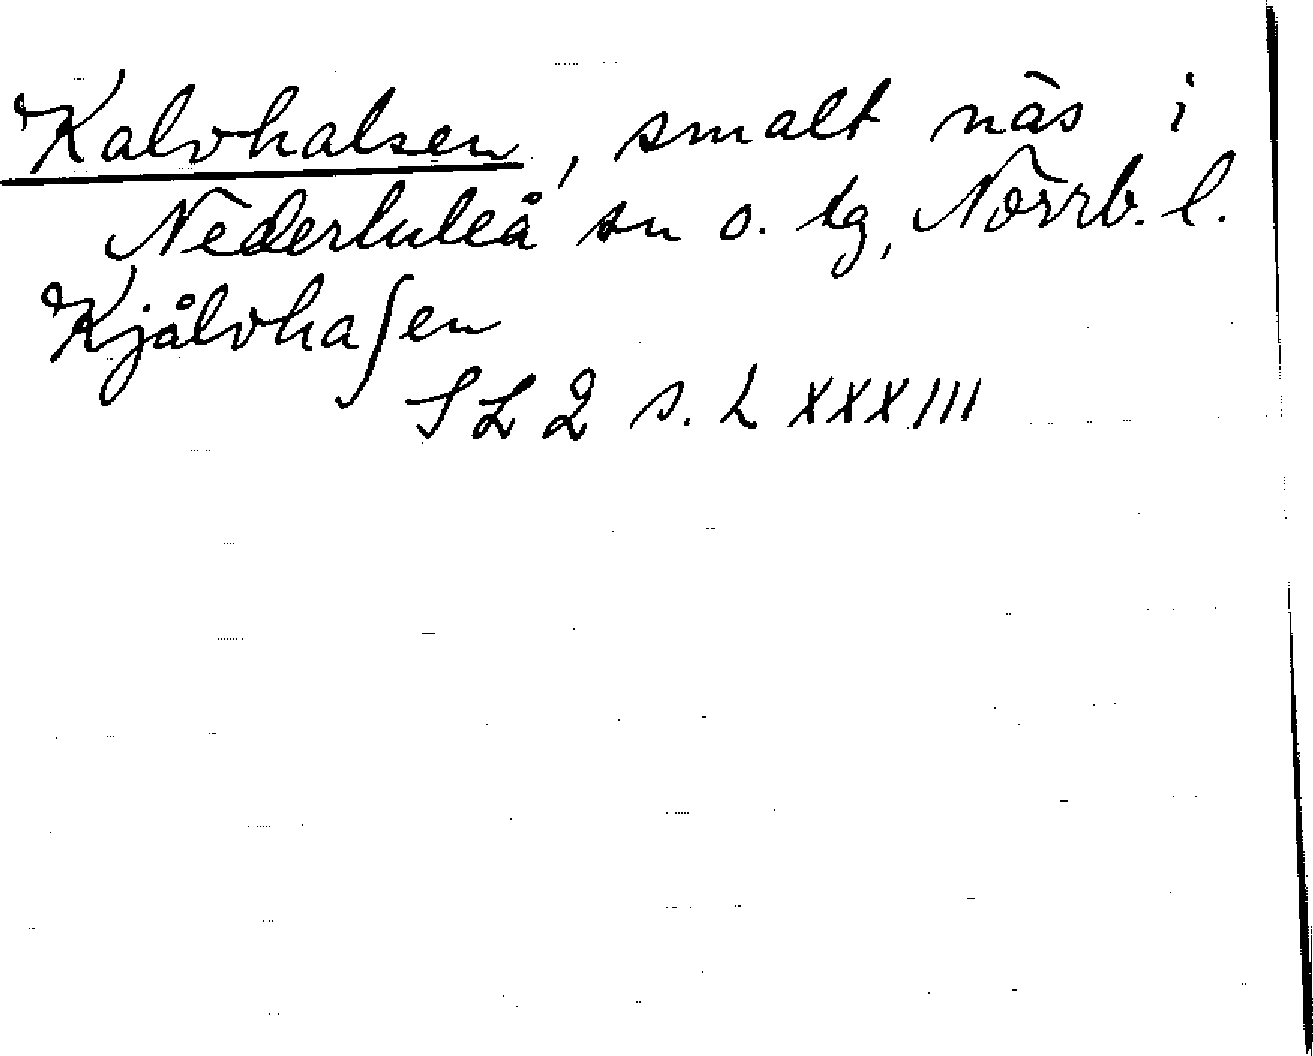 Kalvhalsen, smalt näs i
Nederluleå sn o. tg, Norrb. l.
Kjålvhaʃen
SL 2 s. LXXXIII